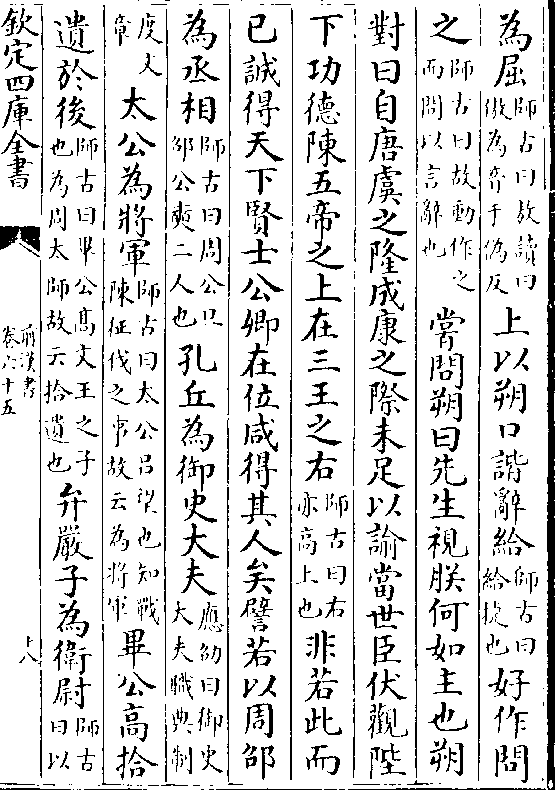 為屈師古曰敖讀曰傲為音于偽反上以朔口諧辭給師古曰給捷也好作問
之師古曰故動作之而問以言辭也嘗問朔曰先生視朕何如主也朔
對曰自唐虞之隆成康之際未足以諭當世臣伏觀陛
下功德陳五帝之上在三王之右師古曰右亦高上也非若此而
已誠得天下賢士公卿在位咸得其人矣譬若以周邵
為丞相師古曰周公旦邵公奭二人也孔丘為御史大夫應劭曰御史大夫職典制
度文章太公為將軍師古曰太公吕望也知戰陳征伐之事故云為將軍畢公高拾
遺於後師古曰畢公高文王之子也為周太師故云拾遺也弁嚴子為衛尉師古曰以
欽定四庫全書
前漢書
卷六十五
十八